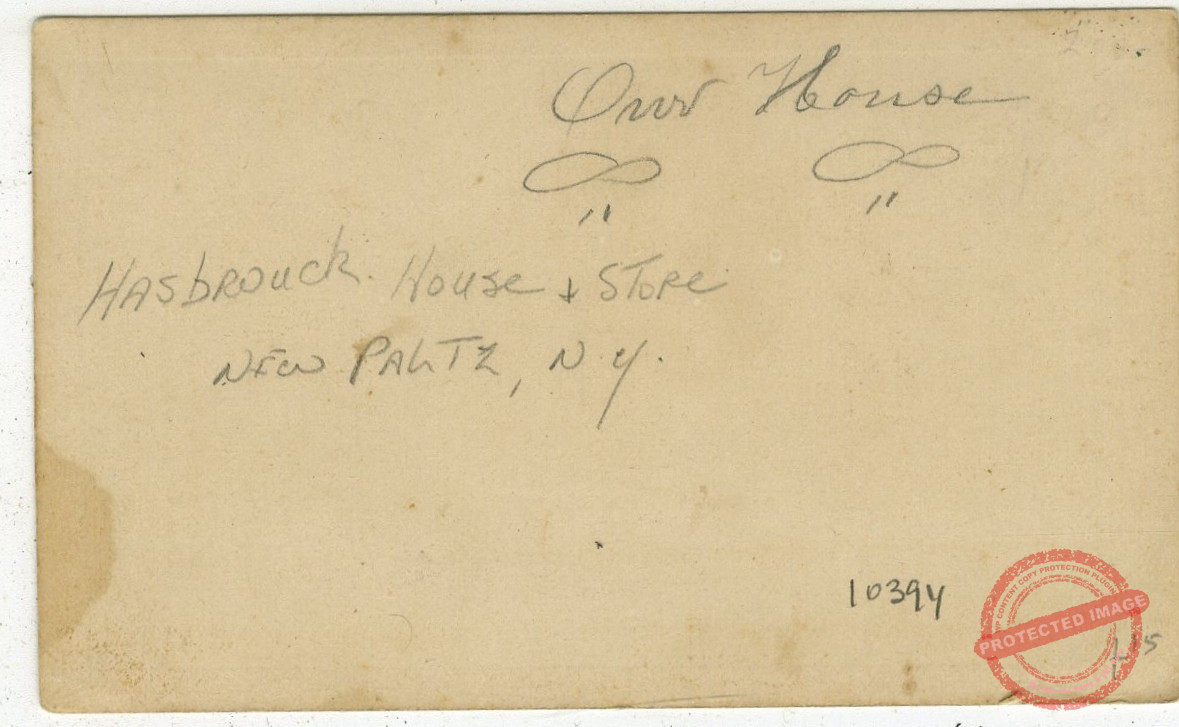 Our House
" "
Hasbrouck House + Store
New Paltz, N Y.
10394
WP CONTENT COPY PROTECTION PLUGIN
PROTECTED IMAGE